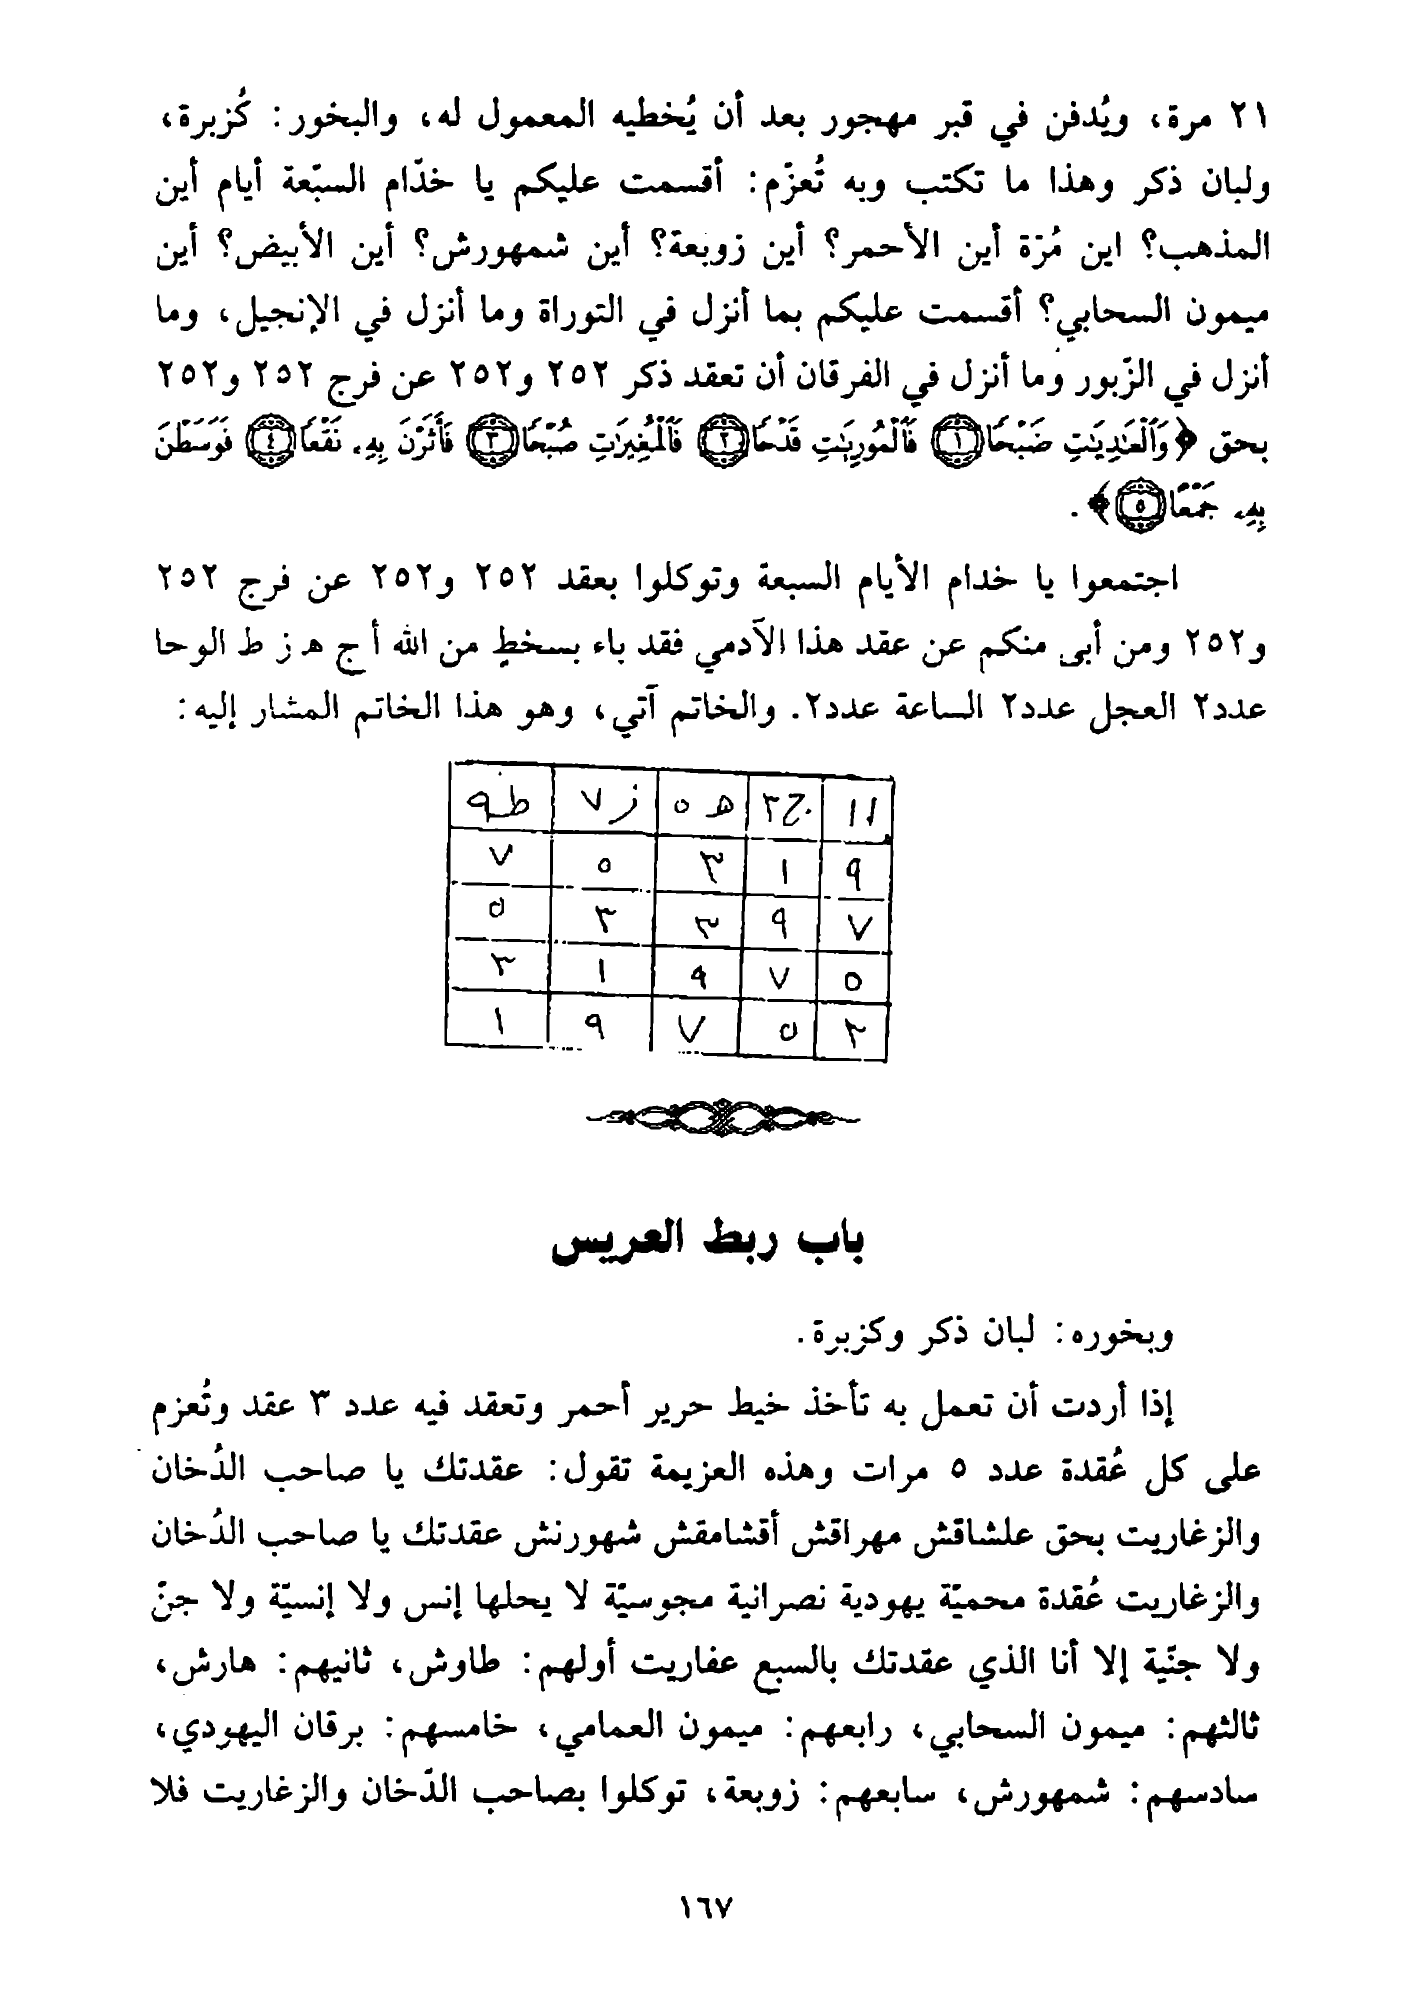 ٢١ مرة، ويُدفن في قبر مهجور بعد أن يُخطيه المعمول له، والبخور: كُزبرة،
ولبان ذكر وهذا ما تكتب وبه تُعزّم: أقسمت عليكم يا خدّام السبّعة أيام أين
المذهب؟ اين مُرّة أين الأحمر؟ أين زوبعة؟ أين شمهورش؟ أين الأبيض؟ أين
ميمون السحابي؟ أقسمت عليكم بما أنزل في التوراة وما أنزل في الإنجيل، وما
أنزل في الزّبور وما أنزل في الفرقان أن تعقد ذكر ٢٥٢ و٢٥٢ عن فرج ٢٥٢ و٢٥٢
بحق ﴿وَٱلْعَٰدِيَٰتِ ضَبْحًا ١ فَٱلْمُورِيَٰتِ قَدْحًا ٢ فَٱلْمُغِيرَٰتِ صُبْحًا ٣ فَأَثَرْنَ بِهِۦ نَقْعًا ٤ فَوَسَطْنَ
بِهِۦ جَمْعًا ٥﴾.
اجتمعوا يا خدام الأيام السبعة وتوكلوا بعقد ٢٥٢ و٢٥٢ عن فرج ٢٥٢
و٢٥٢ ومن أبى منكم عن عقد هذا الآدمي فقد باء بسخطٍ من الله أ ج هـ ز ط الوحا
عدد٢ العجل عدد٢ الساعة عدد٢. والخاتم آتي، وهو هذا الخاتم المشار إليه:
ا ١ ج ٣ هـ ٥ ز ٧ ط ٩
٩ ١ ٣ ٥ ٧
٧ ٩ ٣ ٣ ٥
٥ ٧ ٩ ١ ٣
٣ ٥ ٧ ٩ ١
باب ربط العريس
وبخوره: لبان ذكر وكزبرة.
إذا أردت أن تعمل به تأخذ خيط حرير أحمر وتعقد فيه عدد ٣ عقد وتُعزم
على كل عُقدة عدد ٥ مرات وهذه العزيمة تقول: عقدتك يا صاحب الدُخان
والزغاريت بحق علشاقش مهراقش أقشامقش شهورنش عقدتك يا صاحب الدُخان
والزغاريت عُقدة محميّة يهودية نصرانية مجوسيّة لا يحلها إنس ولا إنسيّة ولا جنّ
ولا جنّية إلا أنا الذي عقدتك بالسبع عفاريت أولهم: طاوش، ثانيهم: هارش،
ثالثهم: ميمون السحابي، رابعهم: ميمون العمامي، خامسهم: برقان اليهودي،
سادسهم: شمهورش، سابعهم: زوبعة، توكلوا بصاحب الدّخان والزغاريت فلا
١٦٧